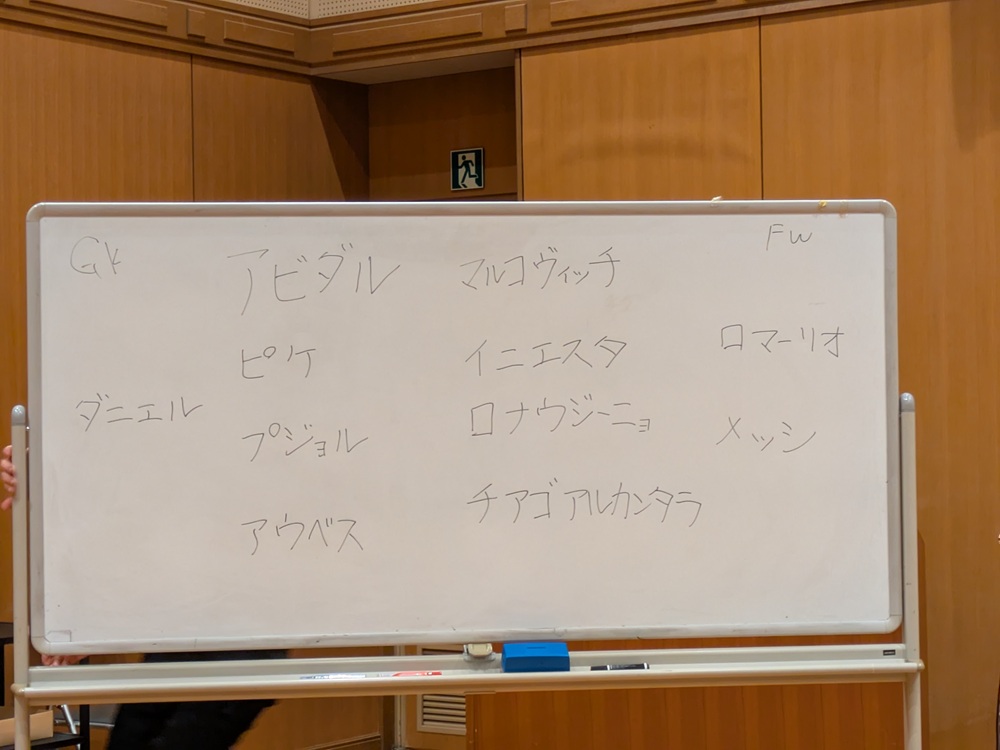 GK
ダニエル
アビダル
ピケ
プジョル
アウベス
マルコヴィッチ
イニエスタ
ロナウジーニョ
チアゴアルカンタラ
FW
ロマーリオ
メッシ